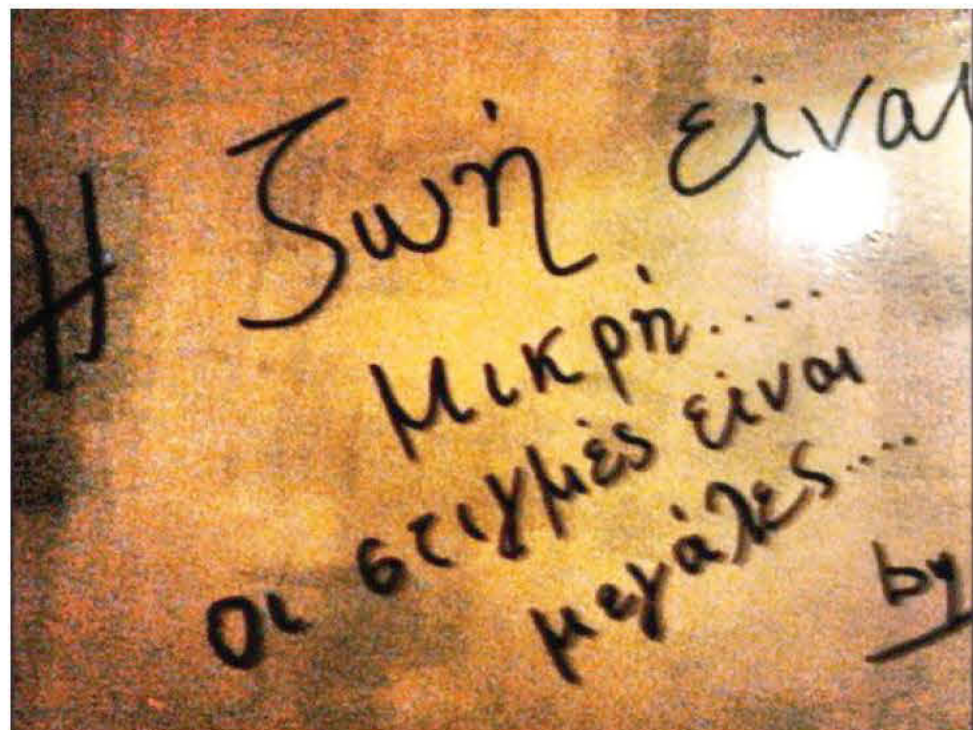 Η ζωή είναι
μικρή.....
οι στιγμές είναι
μεγάλες....
by